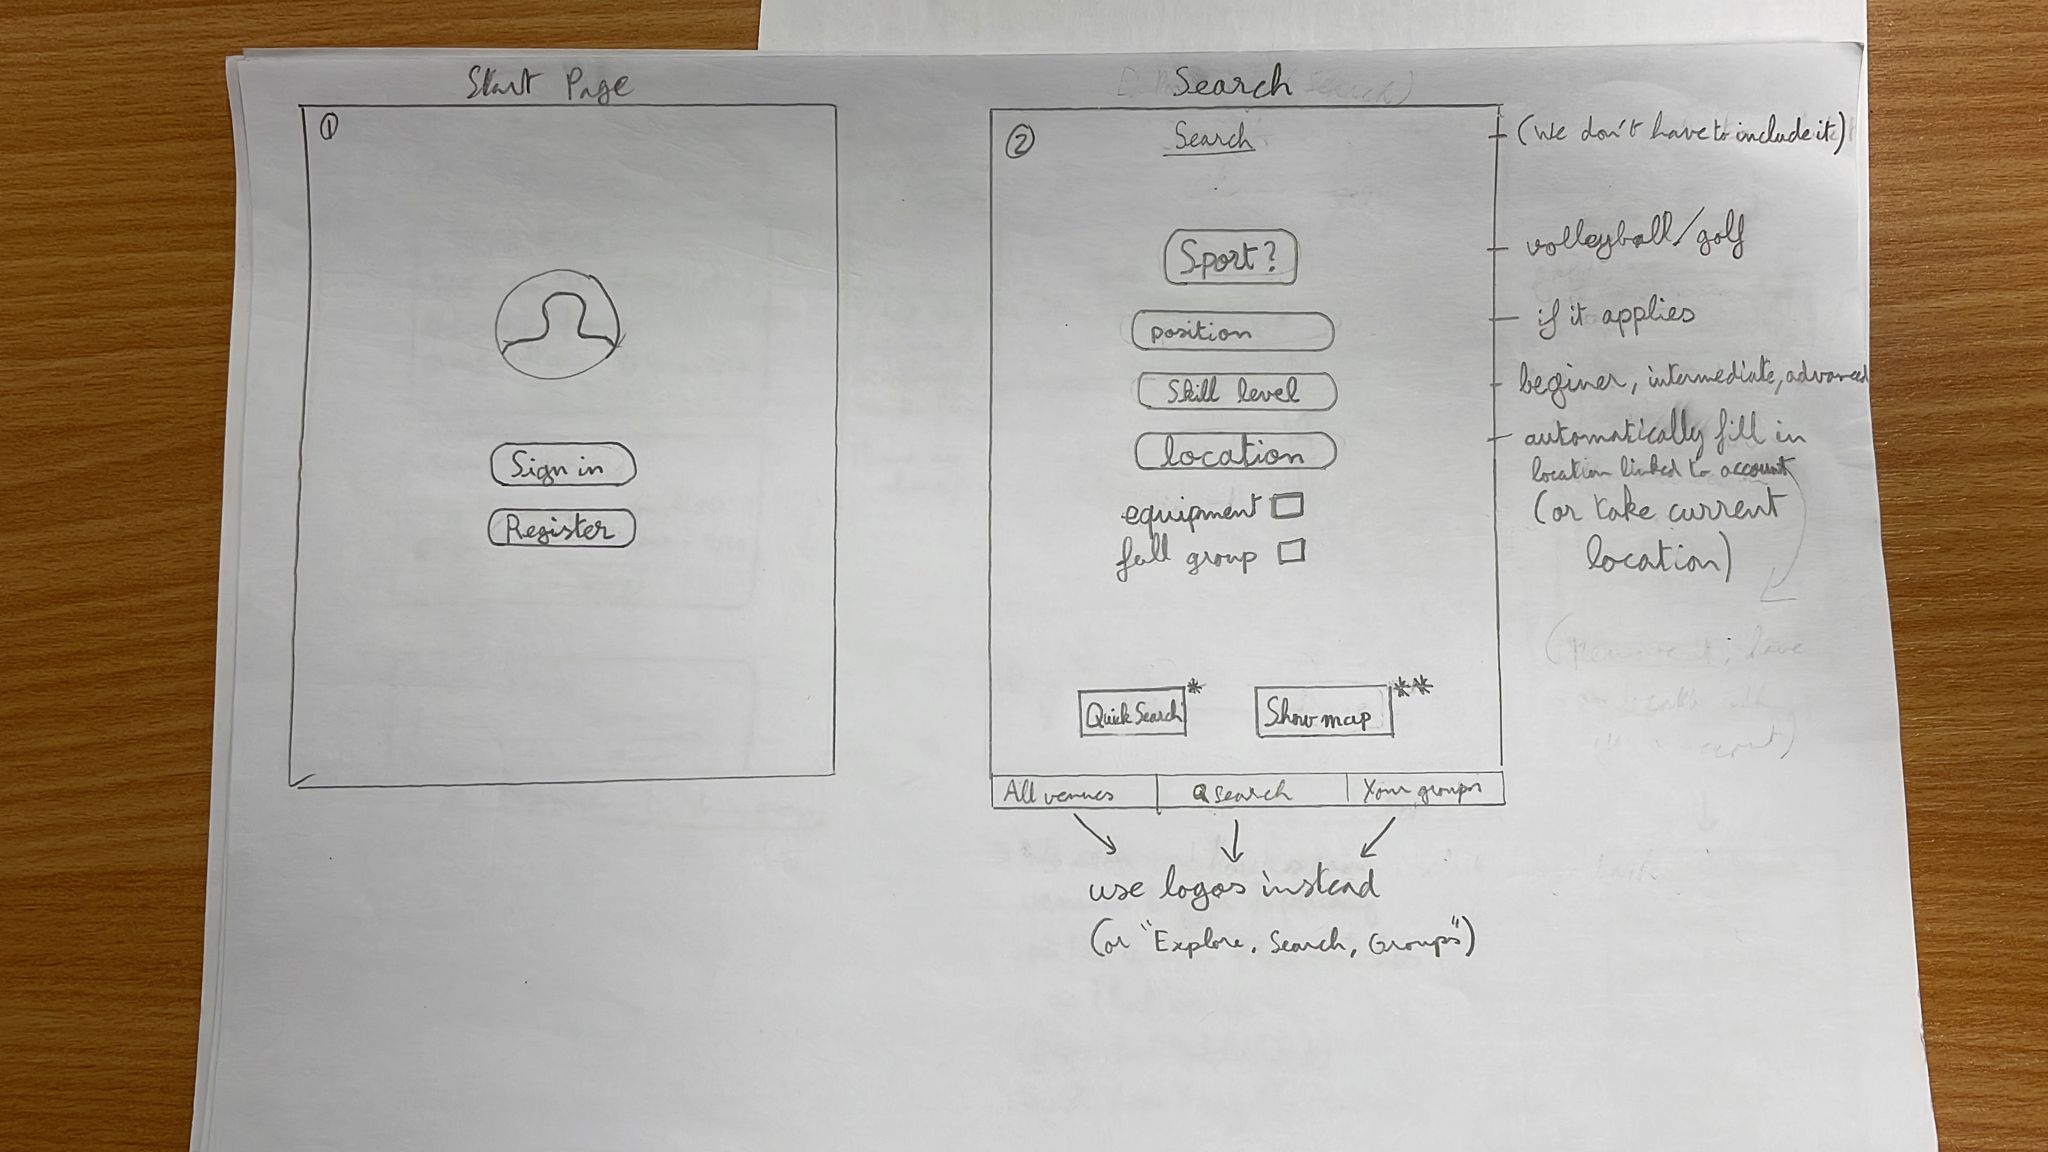 Start Page
①
Sign in
Register
Search
②
Search
(We don't have to include it)
Sport?
volleyball/golf
position
if it applies
Skill level
beginer, intermediate, advanced
location
automatically fill in
location linked to account
(or take current
location)
equipment
full group
Quick Search *
Show map **
All venues
Search
Your groups
use logos instead
(or "Explore, Search, Groups")